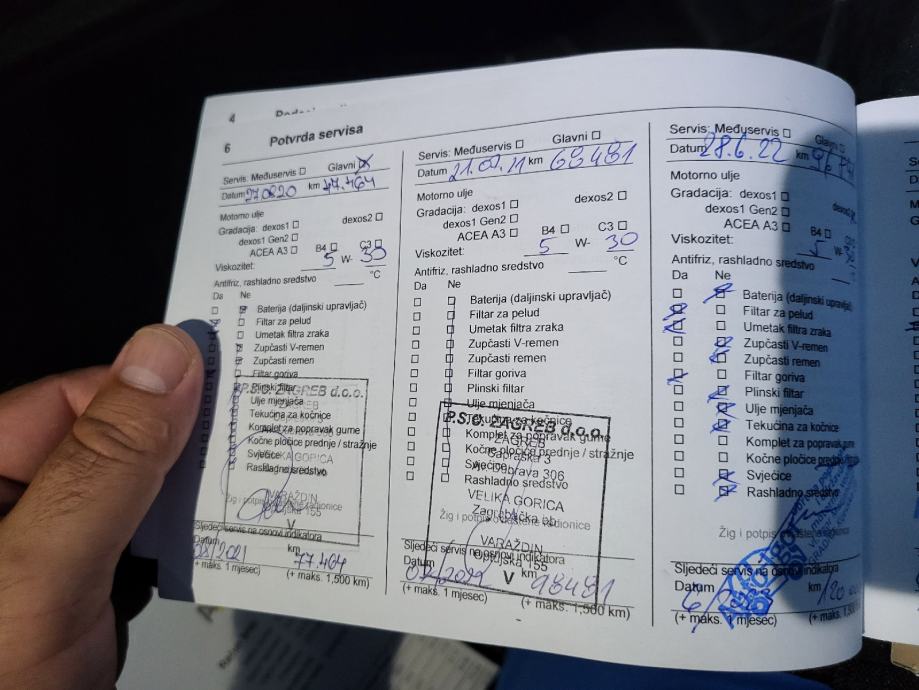 4
6 Potvrda servisa
Servis: Međuservis ☐ Glavni ☒
Datum 27.08.20 km 47.464
Motorno ulje
Gradacija: dexos1 ☐ dexos2 ☐
dexos1 Gen2 ☐
ACEA A3 ☐ B4 ☐ C3 ☐
Viskozitet: 5 W- 30
Antifriz, rashladno sredstvo ____ °C
Da Ne
Baterija (daljinski upravljač)
Filtar za pelud
Umetak filtra zraka
Zupčasti V-remen
Zupčasti remen
Filtar goriva
Plinski filtar
Ulje mjenjača
Tekućina za kočnice
Komplet za popravak gume
Kočne pločice prednje / stražnje
Svjećice
Rashladno sredstvo
P.S.C. ZAGREB d.o.o.
VARAŽDIN
V
Sljedeći servis na osnovi indikatora
Datum km
08/2021 77.464
(+ maks. 1 mjesec) (+ maks. 1,500 km)
Servis: Međuservis ☐ Glavni ☐
Datum km 68481
Motorno ulje
Gradacija: dexos1 ☐ dexos2 ☐
dexos1 Gen2 ☐
ACEA A3 ☐ B4 ☐ C3 ☐
Viskozitet: 5 W- 30
Antifriz, rashladno sredstvo ____ °C
Da Ne
Baterija (daljinski upravljač)
Filtar za pelud
Umetak filtra zraka
Zupčasti V-remen
Zupčasti remen
Filtar goriva
Plinski filtar
Ulje mjenjača
Tekućina za kočnice
Komplet za popravak gume
Kočne pločice prednje / stražnje
Svjećice
Rashladno sredstvo
P.S.C. ZAGREB d.o.o.
ZAGREB
306
VELIKA GORICA
Zagrebačka bb
VARAŽDIN
Optujska 155
V
Žig i potpis
Sljedeći servis na osnovi indikatora
Datum km
98481
(+ maks. 1 mjesec) (+ maks. 1,500 km)
Servis: Međuservis ☐ Glavni ☐
Datum 28.6.22 km
Motorno ulje
Gradacija: dexos1 ☐
dexos1 Gen2 ☐
ACEA A3 ☐ B4 ☐
Viskozitet: 5 W-
Antifriz, rashladno sredstvo
Da Ne
Baterija (daljinski upravljač)
Filtar za pelud
Umetak filtra zraka
Zupčasti V-remen
Zupčasti remen
Filtar goriva
Plinski filtar
Ulje mjenjača
Tekućina za kočnice
Komplet za popravak gume
Kočne pločice prednje
Svjećice
Rashladno sredstvo
Žig i potpis
Sljedeći servis na osnovi indikatora
Datum km
(+ maks. 1 mjesec) (+ maks. 1,500